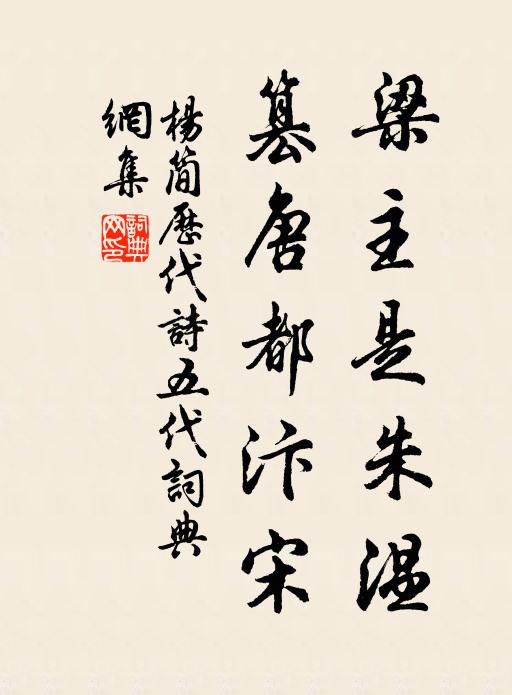 梁主是朱溫
篡唐都汴宋
楊簡歷代詩五代詞典
網集
詞典網印